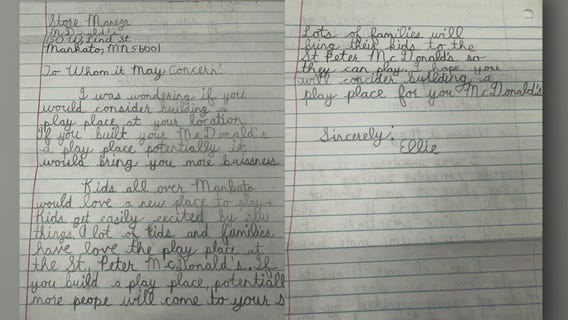 Store Manegr
McDonald's
50 W Lind st
Mankato, MN 56001
To Whom it May Concern:
I was wondering if you
would consider building a
play place at your location.
If you built your McDonald's
a play place potentially it
would bring you more buissness
Kids all over Mankato
would love a new place to play.
Kids get easily excited by new
things. A lot of kids and families
have love the play place at
the St. Peter McDonald's. If
you build a play place, potentiall
more peope will come to your s
Lots of families will
bring their kids to the
St Peter McDonald's so
they can play. I hope you
will concider building a
play place for you McDonald's
Sincerely,
Ellie